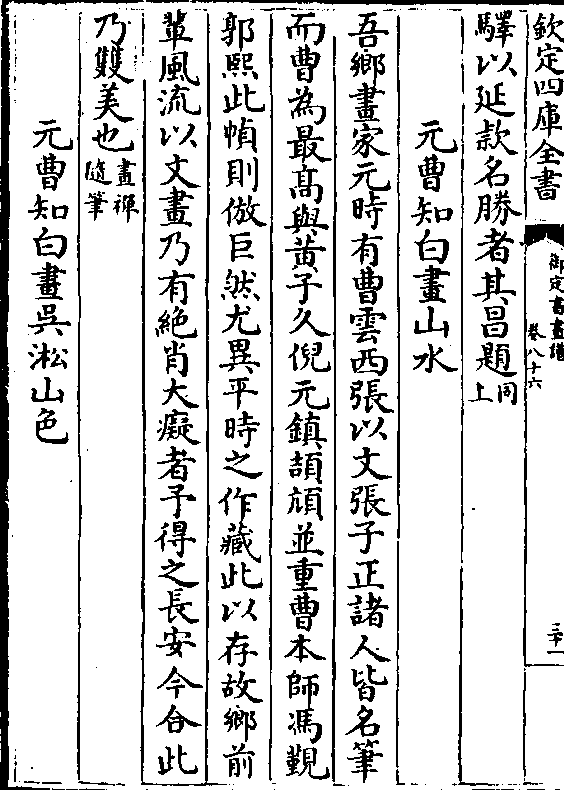 欽定四庫全書
御定書畫譜
卷八十六
三十一
驛以延款名勝者其昌題同上
元曹知白畫山水
吾鄉畫家元時有曹雲西張以文張子正諸人皆名筆
而曹為最髙與黃子久倪元鎮頡頏並重曹本師馮覲
郭熙此幀則倣巨然尤異平時之作藏此以存故鄉前
軰風流以文畫乃有絶肖大癡者予得之長安今合此
乃雙美也畫禪隨筆
元曹知白畫吳淞山色